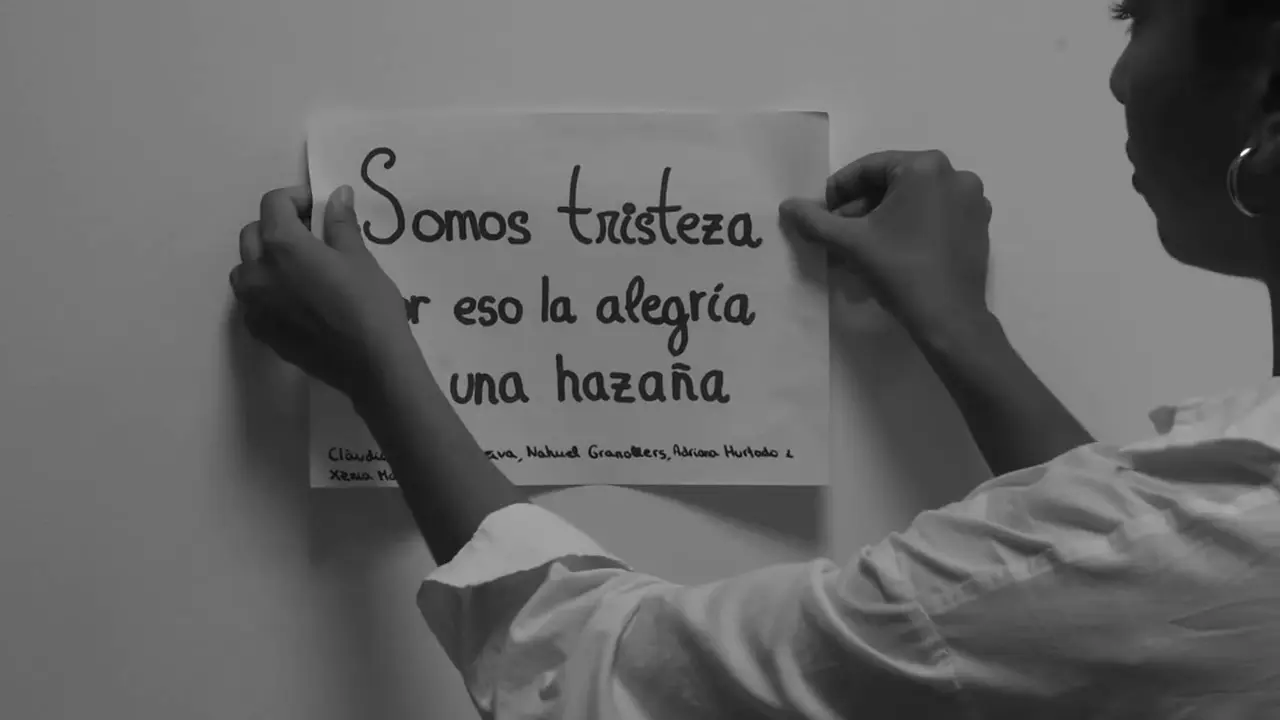 Somos tristeza
eso la alegría
una hazaña
Nahuel Granollers, Adriana Hurtado i
Xènia